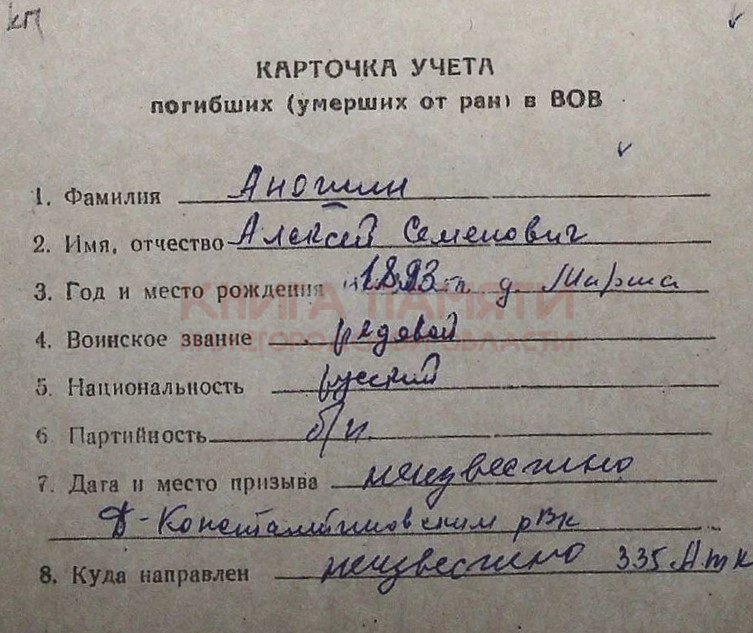 КП
КАРТОЧКА УЧЕТА
погибших (умерших от ран) в ВОВ
1. Фамилия Аношин
2. Имя, отчество Алексей Семенович
3. Год и место рождения 1893 д. Марша
КНИГА ПАМЯТИ
4. Воинское звание рядовой
НИЖЕГОРОДСКОЙ ОБЛАСТИ
5. Национальность русский
6. Партийность б/п
7. Дата и место призыва неизвестно
Д-Константиновским рВк
8. Куда направлен неизвестно 335